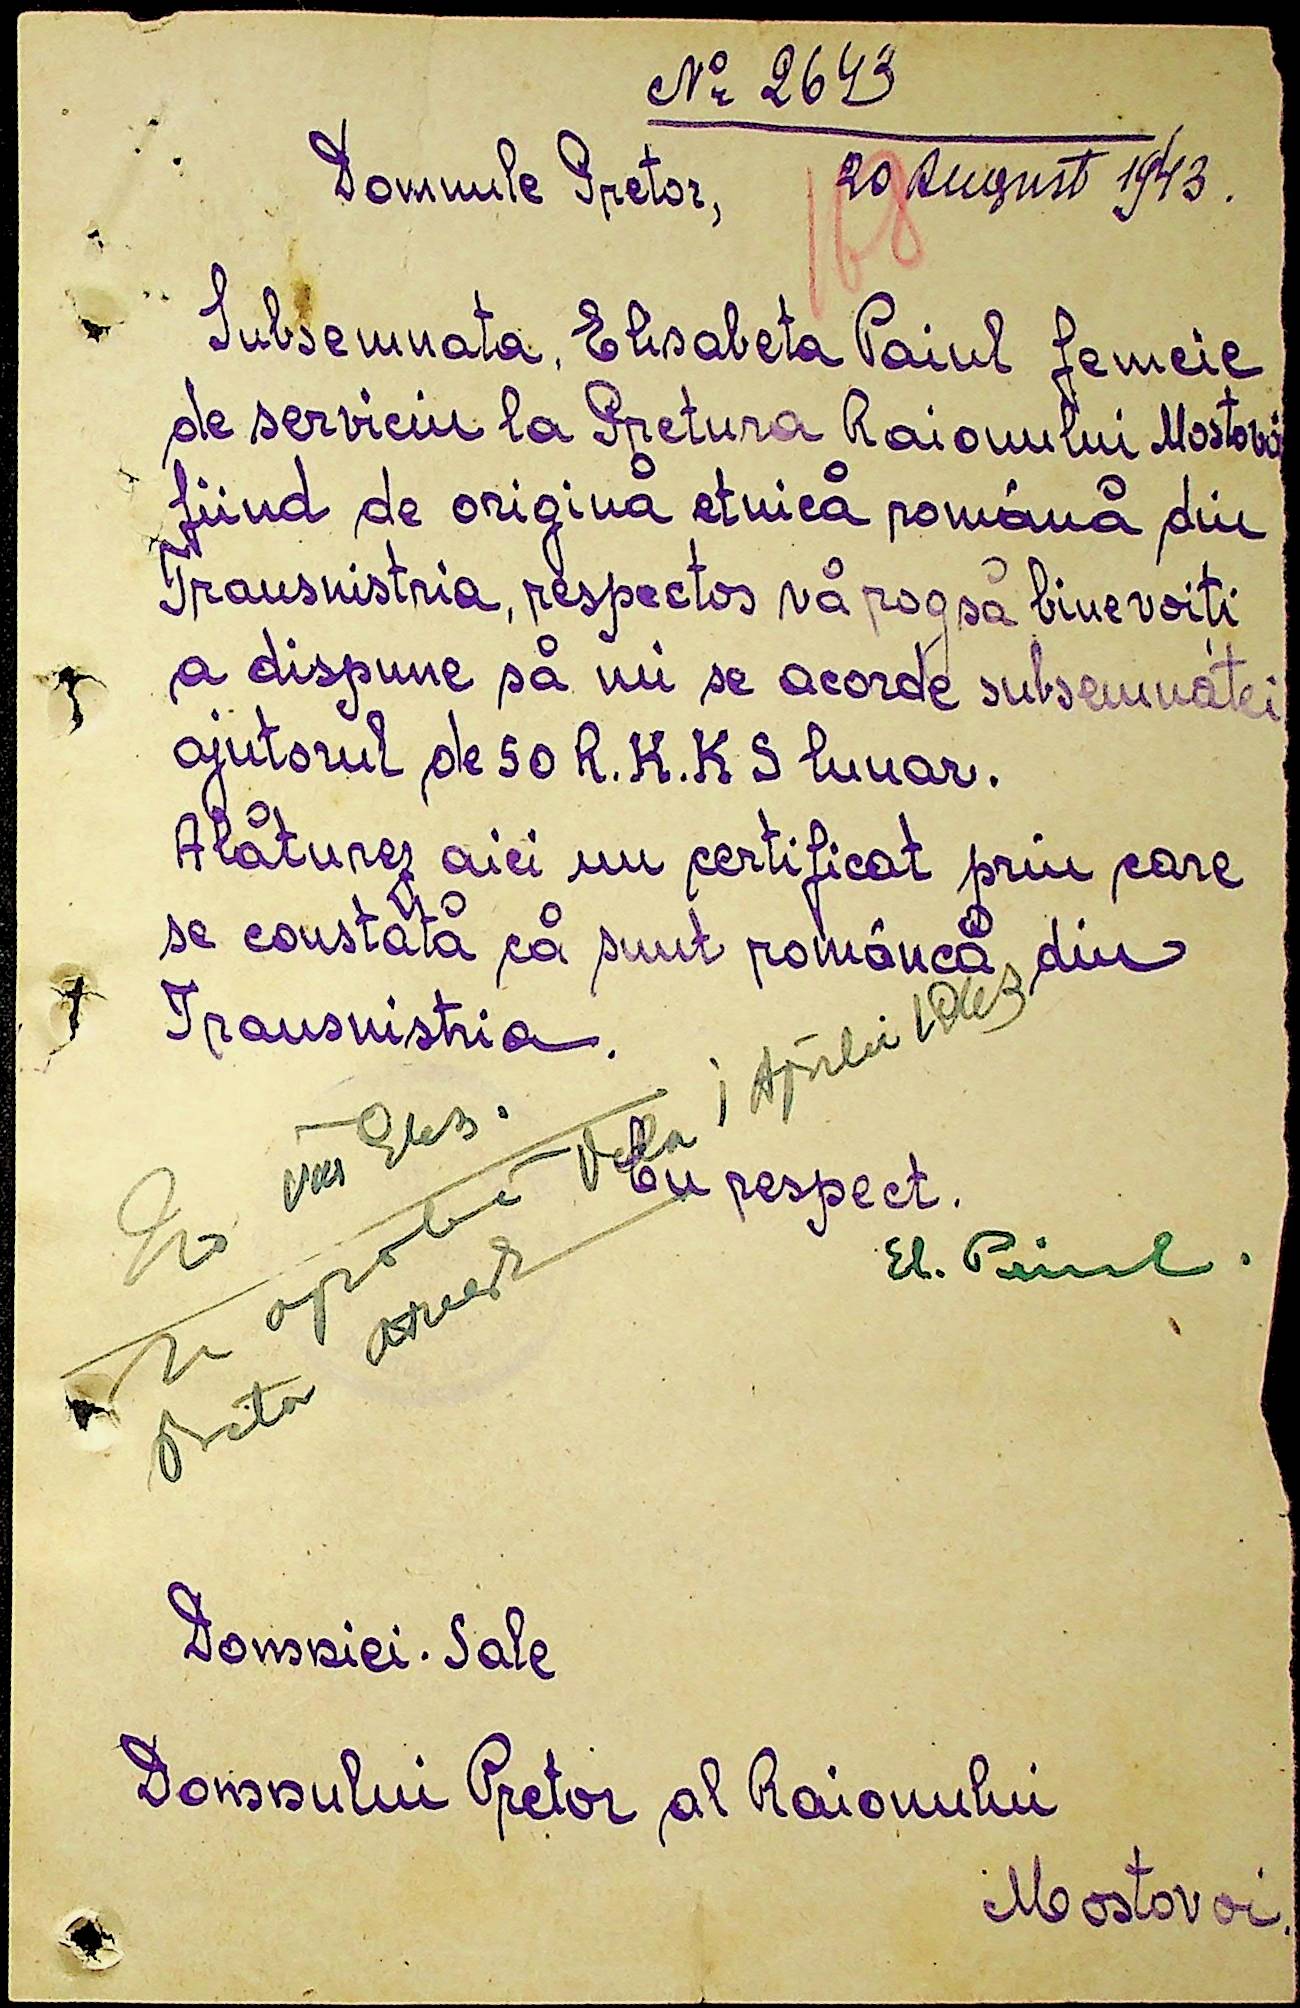 No 2643
Domnule Pretor, 20 August 1943.
168
Subsemnata, Elisabeta Paiul femeie
de serviciu la Pretura Raionului Mostovoi
fiind de origină etnică română din
Transnistria, respectos vă rog să binevoiți
a dispune să mi se acorde subsemnatei
ajutorul de 50 R.K.K S lunar.
Alăturez aici un certificat prin care
se constată că sunt româncă din
Transnistria.
Cu respect.
El. Paiul.
se aprobă dela 1 Aprilie 1943
Domniei. Sale
Domnului Pretor al Raionului
Mostovoi.